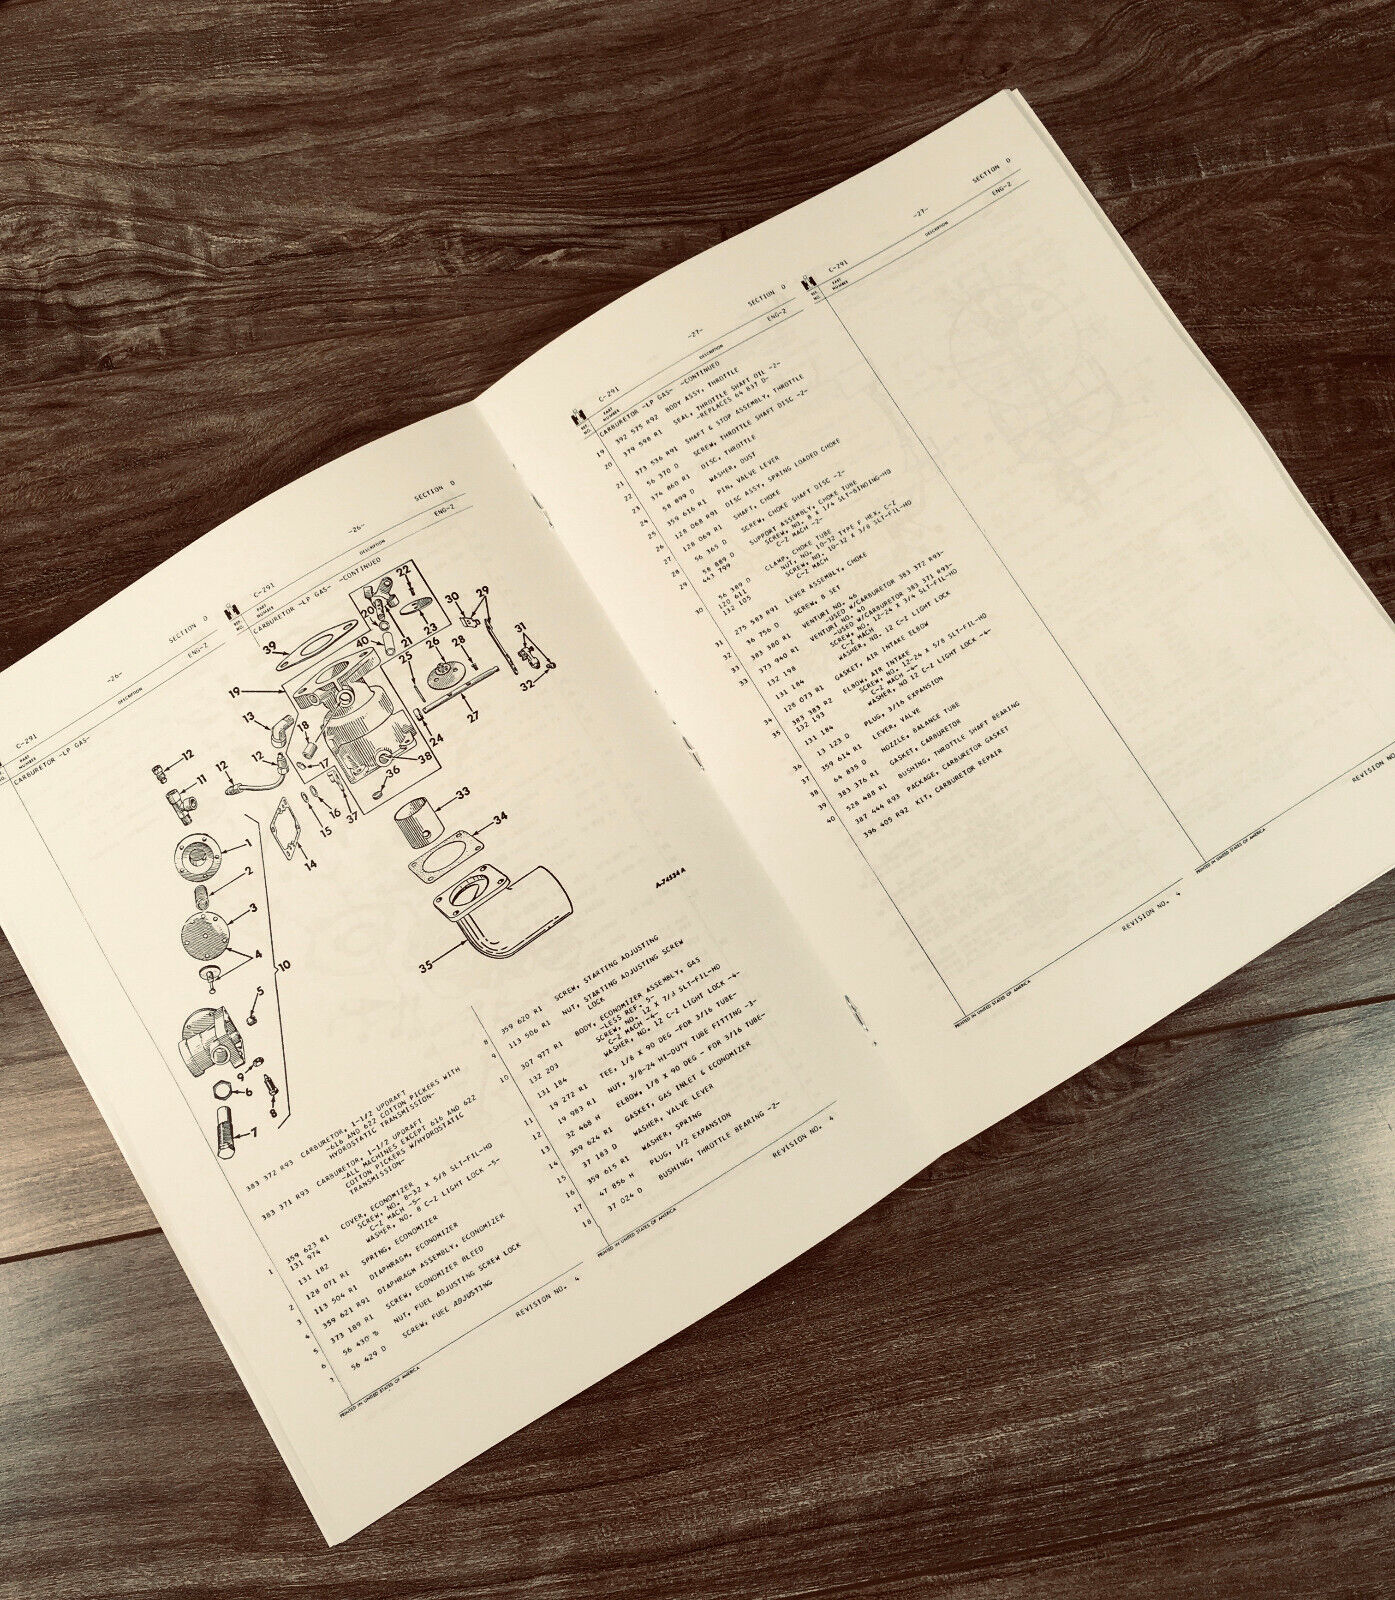 C-291
-26-
SECTION D
REF. NO.
PART NUMBER
DESCRIPTION
ENG-2
CARBURETOR -LP GAS-
C-291
-26-
SECTION D
REF. NO.
PART NUMBER
DESCRIPTION
ENG-2
CARBURETOR -LP GAS- -CONTINUED
12
11
1
2
3
4
10
5
9
6
8
7
13
12
12
39
19
18
17
15
16
37
14
20
40
21
22
23
25
26
28
30
29
31
32
27
24
38
36
33
34
35
A-74534A
383 372 R93 CARBURETOR, 1-1/2 UPDRAFT
-616 AND 622 COTTON PICKERS WITH
HYDROSTATIC TRANSMISSION-
383 371 R93 CARBURETOR, 1-1/2 UPDRAFT
-ALL MACHINES EXCEPT 616 AND 622
COTTON PICKERS W/HYDROSTATIC
TRANSMISSION-
1 359 623 R1 COVER, ECONOMIZER
131 974 SCREW, NO. 8-32 X 5/8 SLT-FIL-HD
C-Z MACH -5-
131 182 WASHER, NO. 8 C-Z LIGHT LOCK -5-
2 128 071 R1 SPRING, ECONOMIZER
3 113 504 R1 DIAPHRAGM, ECONOMIZER
4 359 621 R91 DIAPHRAGM ASSEMBLY, ECONOMIZER
5 373 189 R1 SCREW, ECONOMIZER BLEED
6 56 430 D NUT, FUEL ADJUSTING SCREW LOCK
7 56 429 D SCREW, FUEL ADJUSTING
PRINTED IN UNITED STATES OF AMERICA
REVISION NO. 4
8 359 620 R1 SCREW, STARTING ADJUSTING
9 113 506 R1 NUT, STARTING ADJUSTING SCREW
LOCK
10 307 977 R1 BODY, ECONOMIZER ASSEMBLY, GAS
-LESS REF. 5-
132 203 SCREW, NO. 12 X 7/3 SLT-FIL-HD
C-Z MACH -4-
131 184 WASHER, NO. 12 C-Z LIGHT LOCK -4-
11 19 272 R1 TEE, 1/8 X 90 DEG -FOR 3/16 TUBE-
12 19 983 R1 NUT, 3/8-24 HI-DUTY TUBE FITTING -3-
13 32 468 H ELBOW, 1/8 X 90 DEG - FOR 3/16 TUBE-
14 359 624 R1 GASKET, GAS INLET & ECONOMIZER
15 37 183 D WASHER, VALVE LEVER
16 359 615 R1 WASHER, SPRING
17 47 856 H PLUG, 1/2 EXPANSION
18 37 024 D BUSHING, THROTTLE BEARING -2-
PRINTED IN UNITED STATES OF AMERICA
REVISION NO. 4
C-291
-27-
SECTION D
REF. NO.
PART NUMBER
DESCRIPTION
ENG-2
CARBURETOR -LP GAS- -CONTINUED
19 392 575 R92 BODY ASSY, THROTTLE
20 379 598 R1 SEAL, THROTTLE SHAFT OIL -2-
-REPLACES 64 837 D-
21 373 536 R91 SHAFT & STOP ASSEMBLY, THROTTLE
22 56 370 D SCREW, THROTTLE SHAFT DISC -2-
23 374 860 R1 DISC, THROTTLE
24 58 899 D WASHER, DUST
25 359 616 R1 PIN, VALVE LEVER
26 128 068 R91 DISC ASSY, SPRING LOADED CHOKE
27 128 069 R1 SHAFT, CHOKE
28 56 365 D SCREW, CHOKE SHAFT DISC -2-
29 58 889 D SUPPORT ASSEMBLY, CHOKE TUBE
443 799 SCREW, NO. 8 X 1/4 SLT-BINDING-HD
C-Z MACH -2-
30 56 389 D CLAMP, CHOKE TUBE
120 611 NUT, NO. 10-32 TYPE F HEX, C-Z
132 105 SCREW, NO. 10-32 X 3/8 SLT-FIL-HD
C-Z MACH
31 275 583 R91 LEVER ASSEMBLY, CHOKE
32 36 756 D SCREW, B SET
33 383 380 R1 VENTURI NO. 46
-USED W/CARBURETOR 383 372 R93-
33 373 940 R1 VENTURI NO. 40
-USED W/CARBURETOR 383 371 R93-
132 198 SCREW, NO. 12-24 X 3/4 SLT-FIL-HD
C-Z MACH
131 184 WASHER, NO. 12 C-Z LIGHT LOCK
34 128 073 R1 GASKET, AIR INTAKE ELBOW
35 383 383 R2 ELBOW, AIR INTAKE
132 193 SCREW, NO. 12-24 X 5/8 SLT-FIL-HD
C-Z MACH -4-
131 184 WASHER, NO 12 C-Z LIGHT LOCK -4-
36 13 123 D PLUG, 3/16 EXPANSION
37 359 614 R1 LEVER, VALVE
38 64 835 D NOZZLE, BALANCE TUBE
39 383 376 R1 GASKET, CARBURETOR
40 528 488 R1 BUSHING, THROTTLE SHAFT BEARING
387 444 R93 PACKAGE, CARBURETOR GASKET
396 405 R92 KIT, CARBURETOR REPAIR
PRINTED IN UNITED STATES OF AMERICA
REVISION NO. 4
C-291
-27-
SECTION D
REF. NO.
PART NUMBER
DESCRIPTION
ENG-2
PRINTED IN UNITED STATES OF AMERICA
REVISION NO.